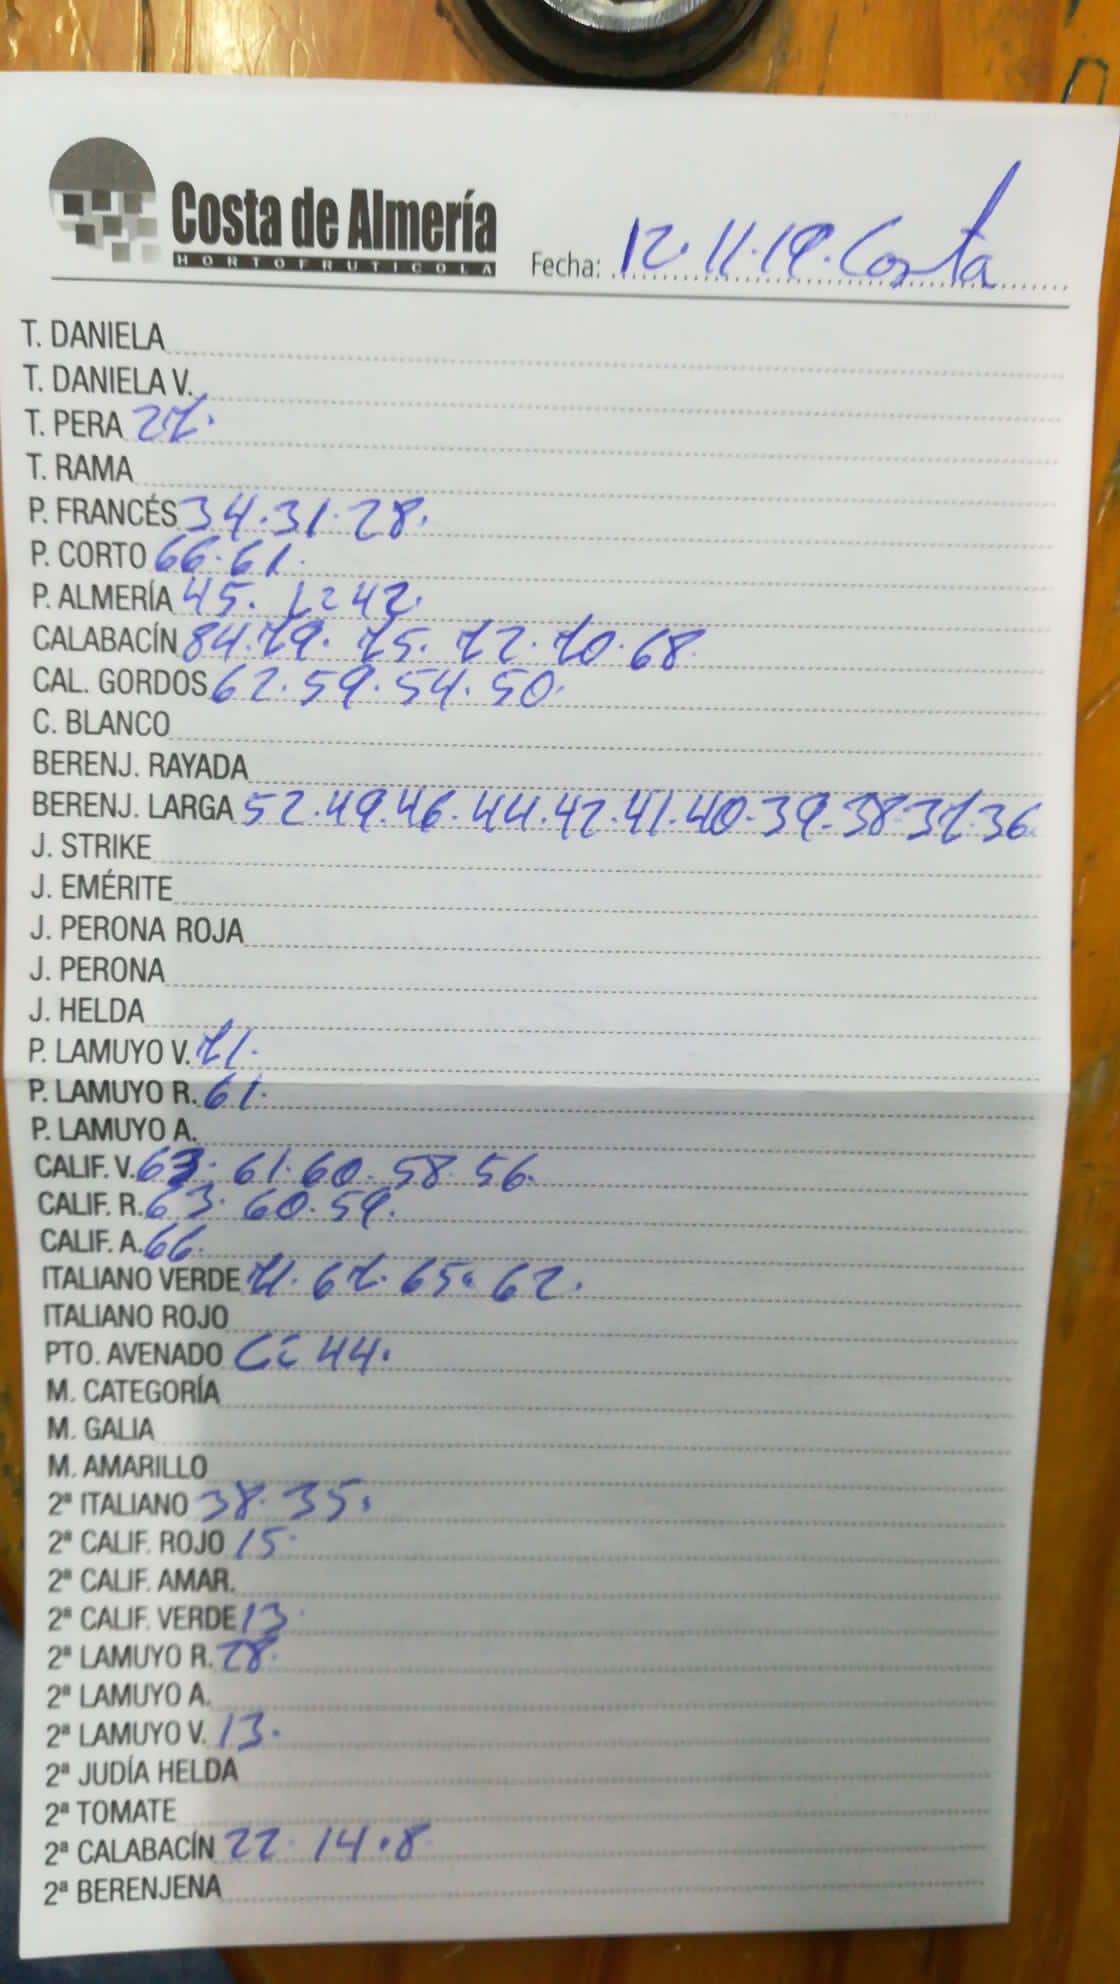 Costa de Almería
HORTOFRUTICOLA
Fecha: 12.11.19. Costa
T. DANIELA
T. DANIELA V.
T. PERA 27.
T. RAMA
P. FRANCÉS 34.31.28.
P. CORTO 66.61.
P. ALMERÍA 45. L= 42.
CALABACÍN 84.79.75.72.70.68.
CAL. GORDOS 62.59.54.50.
C. BLANCO
BERENJ. RAYADA
BERENJ. LARGA 52.49.46.44.42.41.40.39.38.37.36.
J. STRIKE
J. EMÉRITE
J. PERONA ROJA
J. PERONA
J. HELDA
P. LAMUYO V. 71.
P. LAMUYO R. 61.
P. LAMUYO A.
CALIF. V. 63.61.60.58.56.
CALIF. R. 63.60.59.
CALIF. A. 66.
ITALIANO VERDE 71.67.65.62.
ITALIANO ROJO
PTO. AVENADO 44.
M. CATEGORÍA
M. GALIA
M. AMARILLO
2ª ITALIANO 38.35.
2ª CALIF. ROJO 15.
2ª CALIF. AMAR.
2ª CALIF. VERDE 13.
2ª LAMUYO R. 28.
2ª LAMUYO A.
2ª LAMUYO V. 13.
2ª JUDÍA HELDA
2ª TOMATE
2ª CALABACÍN 22.14.8
2ª BERENJENA